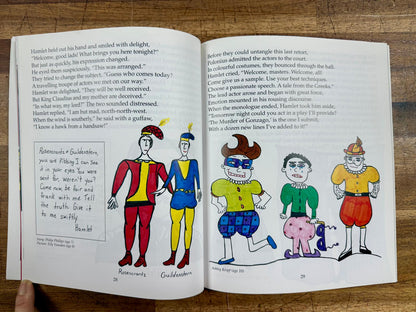 Hamlet held out his hand and smiled with delight,
"Welcome, good lads! What brings you here tonight?"
But just as quickly, his expression changed.
He eyed them suspiciously, "This was arranged."
They tried to change the subject. "Guess who comes today?
A travelling troupe of actors we met on our way."
Hamlet was delighted, "They will be well received.
But King Claudius and my mother are deceived."
"In what way, my lord?" The two sounded distressed.
Hamlet replied, "I am but mad, north-north-west.
When the wind is southerly," he said with a guffaw,
"I know a hawk from a handsaw!"
Rosencrantz + Guildenstern,
you are fibbing I can see
it in your eyes. You were
sent for, weren't you?
Come now, be fair and
frank with me. Tell
the truth. Give it
to me swiftly.
Hamlet
Rosencrantz
Guildenstern
28
Before they could untangle this last retort,
Polonius admitted the actors to the court.
In colourful costumes, they bounced through the hall.
Hamlet cried, "Welcome, masters. Welcome, all!
Come give us a sample. Use your best techniques.
Choose a passionate speech. A tale from the Greeks."
The lead actor arose and began with great force.
Emotion mounted in his rousing discourse
When the monologue ended, Hamlet took him aside,
"Tomorrow night could you act in a play I'll provide?
'The Murder of Gonzago,' is the one I submit,
With a dozen new lines I've added to it!"
Ashley Kropf (age 10)
29